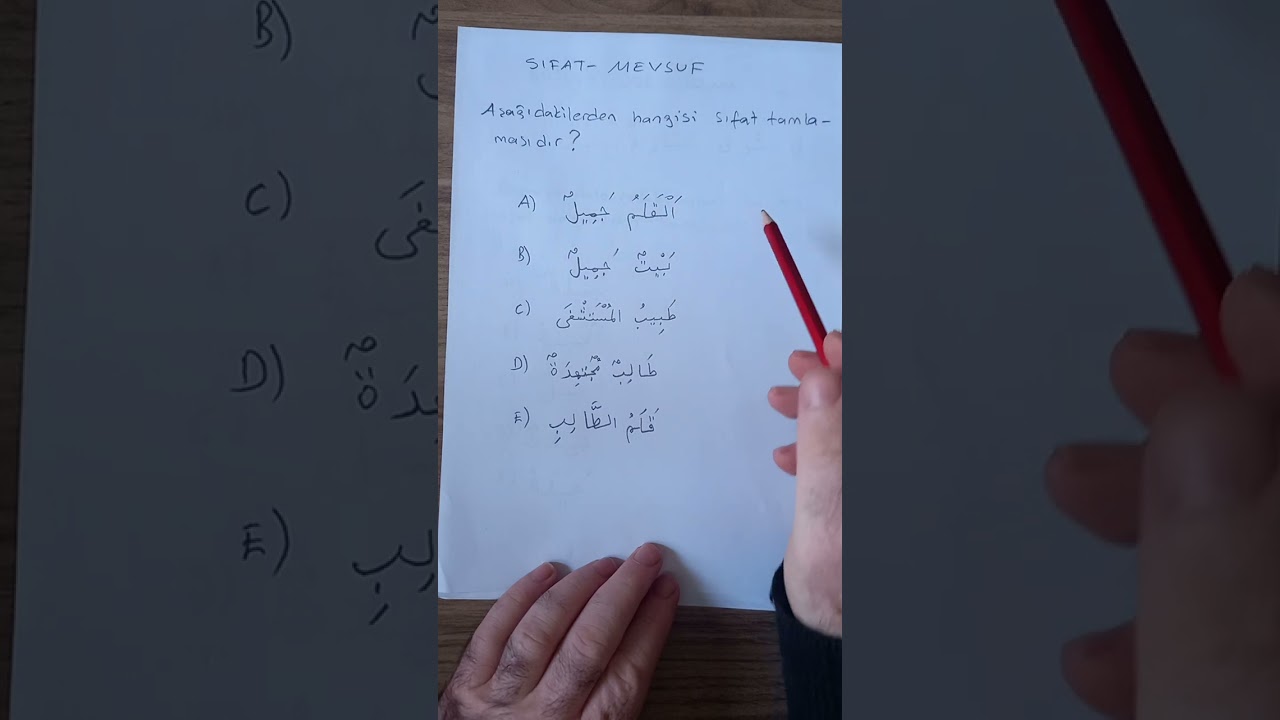 SIFAT- MEVSUF
Aşağıdakilerden hangisi sıfat tamla-
masıdır?
A) اَلْقَلَمُ جَمِيلٌ
B) بَيْتٌ جَمِيلٌ
C) طَبِيبُ الْمُسْتَشْفَى
D) طَالِبٌ مُجْتَهِدَةٌ
E) قَلَمُ الطَّالِبِ